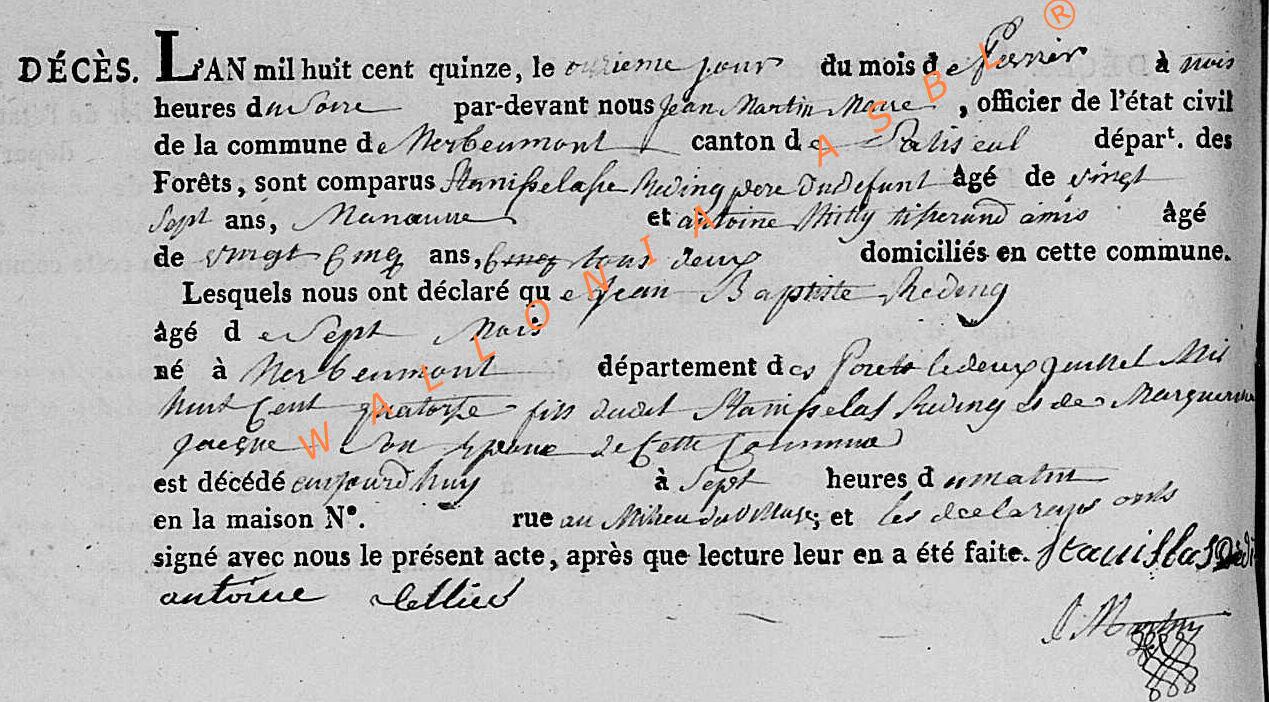 DÉCÈS. L'AN mil huit cent quinze, le onzieme jour du mois de fevrier à trois
heures du Soire par-devant nous Jean Martin Maire, officier de l'état civil
de la commune de Herbeumont canton de Paliseul départ. des
Forêts, sont comparus Stanisselasse Reding pere du defunt âgé de vingt
Sept ans, Manœuvre et antoine tisserand amis âgé
de vingt Cinq ans, tous deux domiciliés en cette commune.
Lesquels nous ont déclaré que Jean Baptiste Reding
âgé de Sept Mois
né à Herbeumont département des Forets le deux Juillet Mil
huit Cent quatorse fils dudit Stanisselas Reding et de Marguerite
Jacque Son Epouse de Cette Commune
est décédé aujourd'huy à Sept heures du matin
en la maison N°. rue au Milieu du Village; et les declarants onts
signé avec nous le présent acte, après que lecture leur en a été faite. Stanislas Redi
antoine
J Martin
WALLONIA ASBL ®